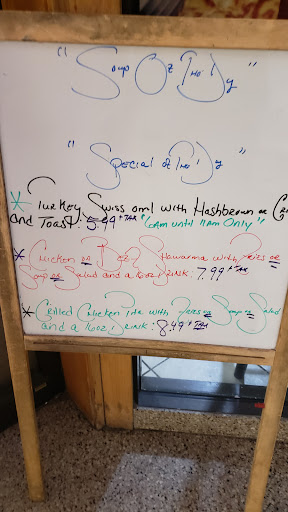 "Soup Of The Day"
"Special of The Day"
* Turkey Swiss oml with Hashbrown or
and Toast: 5.99 + TAX "6AM until 11AM Only"
* Chicken or Shawarma with Fries or
Soup or Salad and a 16oz Drink: 7.99 + TAX
* Grilled Chicken with Fries or Soup or Salad
and a 16oz Drink: 8.49 + TAX